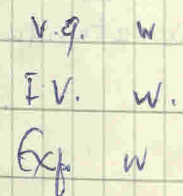 V.g. W
I V. W.
Exp. W